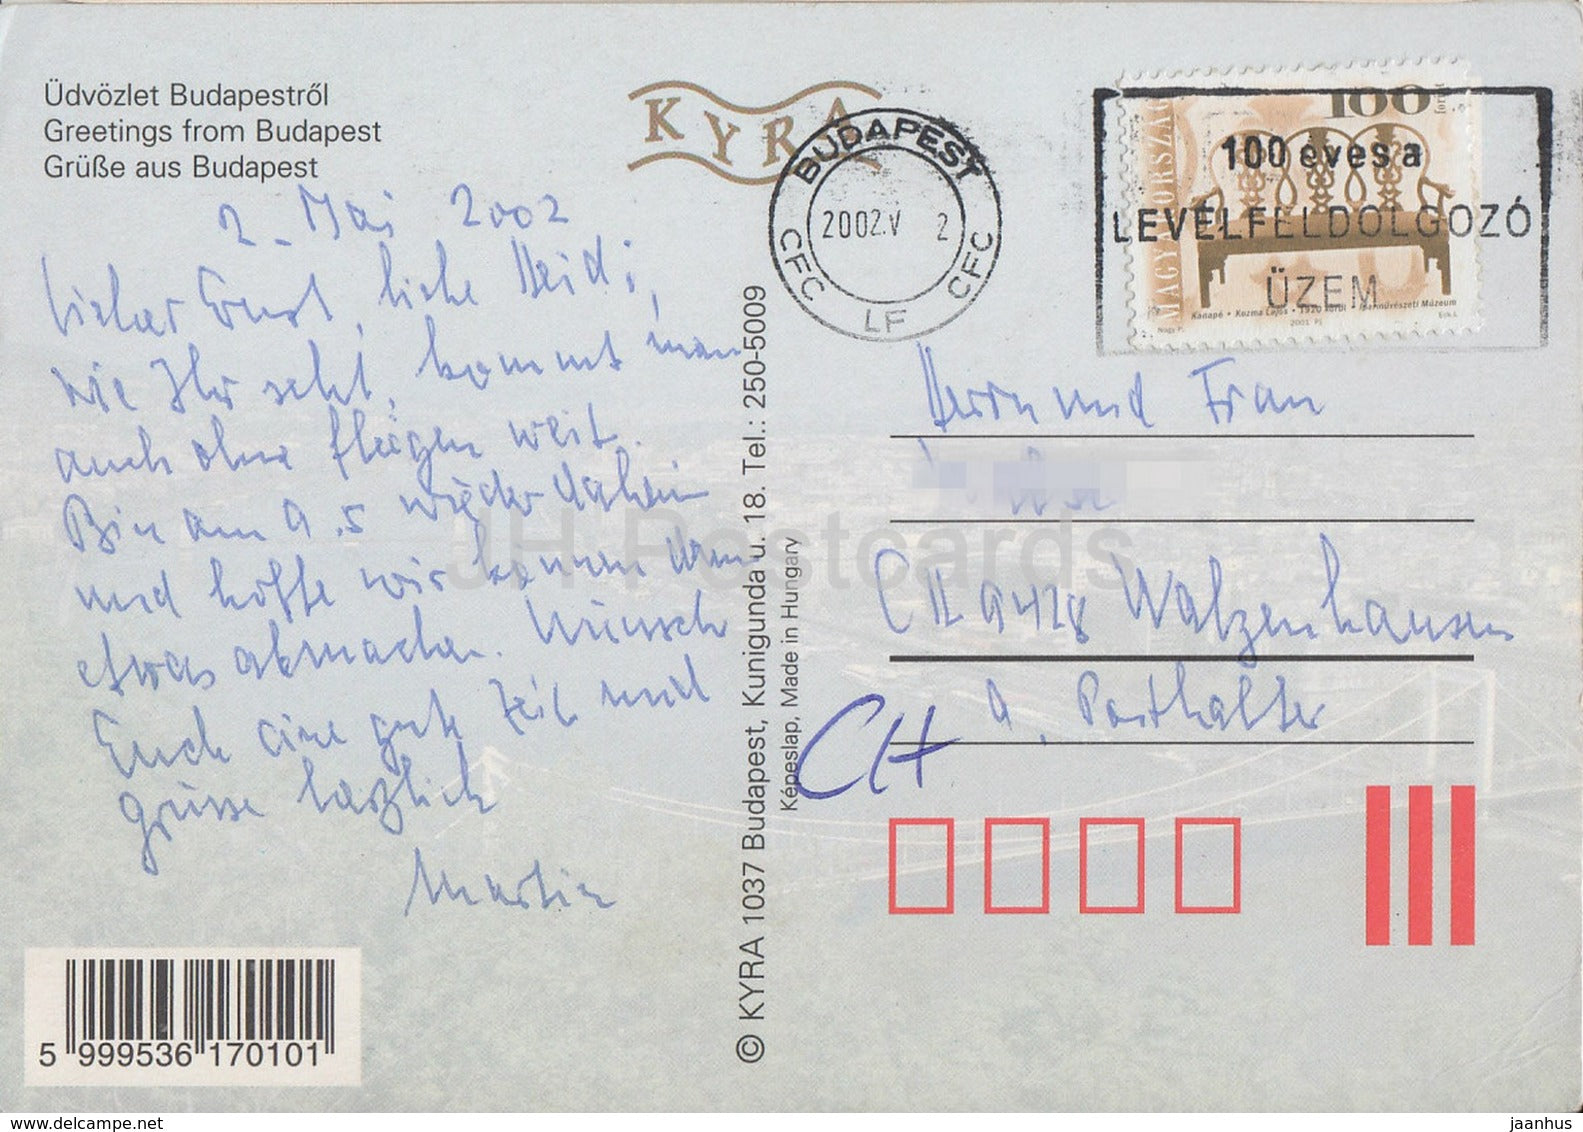 Üdvözlet Budapestről
Greetings from Budapest
Grüße aus Budapest
KYRA
2. Mai 2002
Lieber Ernst, liebe Heidi,
wie Ihr seht, kommt man
auch ohne fliegen weit.
Bin am 9.5 wieder daheim
und hoffe wir können dann
etwas abmachen. Wünsche
Euch eine gute Zeit und
grüsse herzlich
Martin
5 999536 170101
© KYRA 1037 Budapest, Kunigunda u. 18. Tel.: 250-5009
Képeslap, Made in Hungary
BUDAPEST
2002.V 2
CFC CFC
LF
100 éves a
LEVÉLFELDOLGOZÓ
ÜZEM
MAGYARORSZÁG
100 forint
Kanapé • Kozma Lajos • 1920 körül • Iparművészeti Múzeum
2001
Herrn und Frau
CH 9428 Walzenhausen
a. Posthalter
CH
JH Postcards
delcampe.net
jaanhus